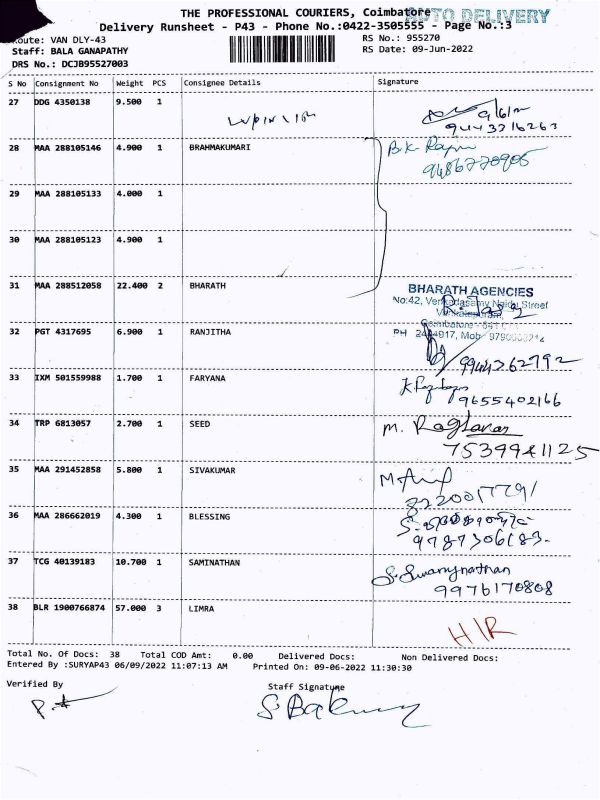 THE PROFESSIONAL COURIERS, Coimbatore
AUTO DELIVERY
Delivery Runsheet - P43 - Phone No.:0422-3505555 - Page No.:3
Route: VAN DLY-43 RS No.: 955270
Staff: BALA GANAPATHY RS Date: 09-Jun-2022
DRS No.: DCJB95527003
S No Consignment No Weight PCS Consignee Details Signature
27 DDG 4350138 9.500 1
9/6/22
9443216263
28 MAA 288105146 4.900 1 BRAHMAKUMARI
B.K. Raju
9486770905
29 MAA 288105133 4.000 1
30 MAA 288105123 4.900 1
31 MAA 288512058 22.400 2 BHARATH
BHARATH AGENCIES
No:42, Venkadasamy Naidu Street
Coimbatore - 641
32 PGT 4317695 6.900 1 RANJITHA
PH
9944362792
33 IXM 501559988 1.700 1 FARYANA
9655402166
34 TRP 6813057 2.700 1 SEED
M. Raghavan
7539941125
35 MAA 291452858 5.800 1 SIVAKUMAR
8220017791
36 MAA 286662019 4.300 1 BLESSING
9787306183-
37 TCG 40139183 10.700 1 SAMINATHAN
S. Swamynathan
9976170808
38 BLR 1900766874 57.000 3 LIMRA
H/R
Total No. Of Docs: 38 Total COD Amt: 0.00 Delivered Docs: Non Delivered Docs:
Entered By :SURYAP43 06/09/2022 11:07:13 AM Printed On: 09-06-2022 11:30:30
Verified By Staff Signature